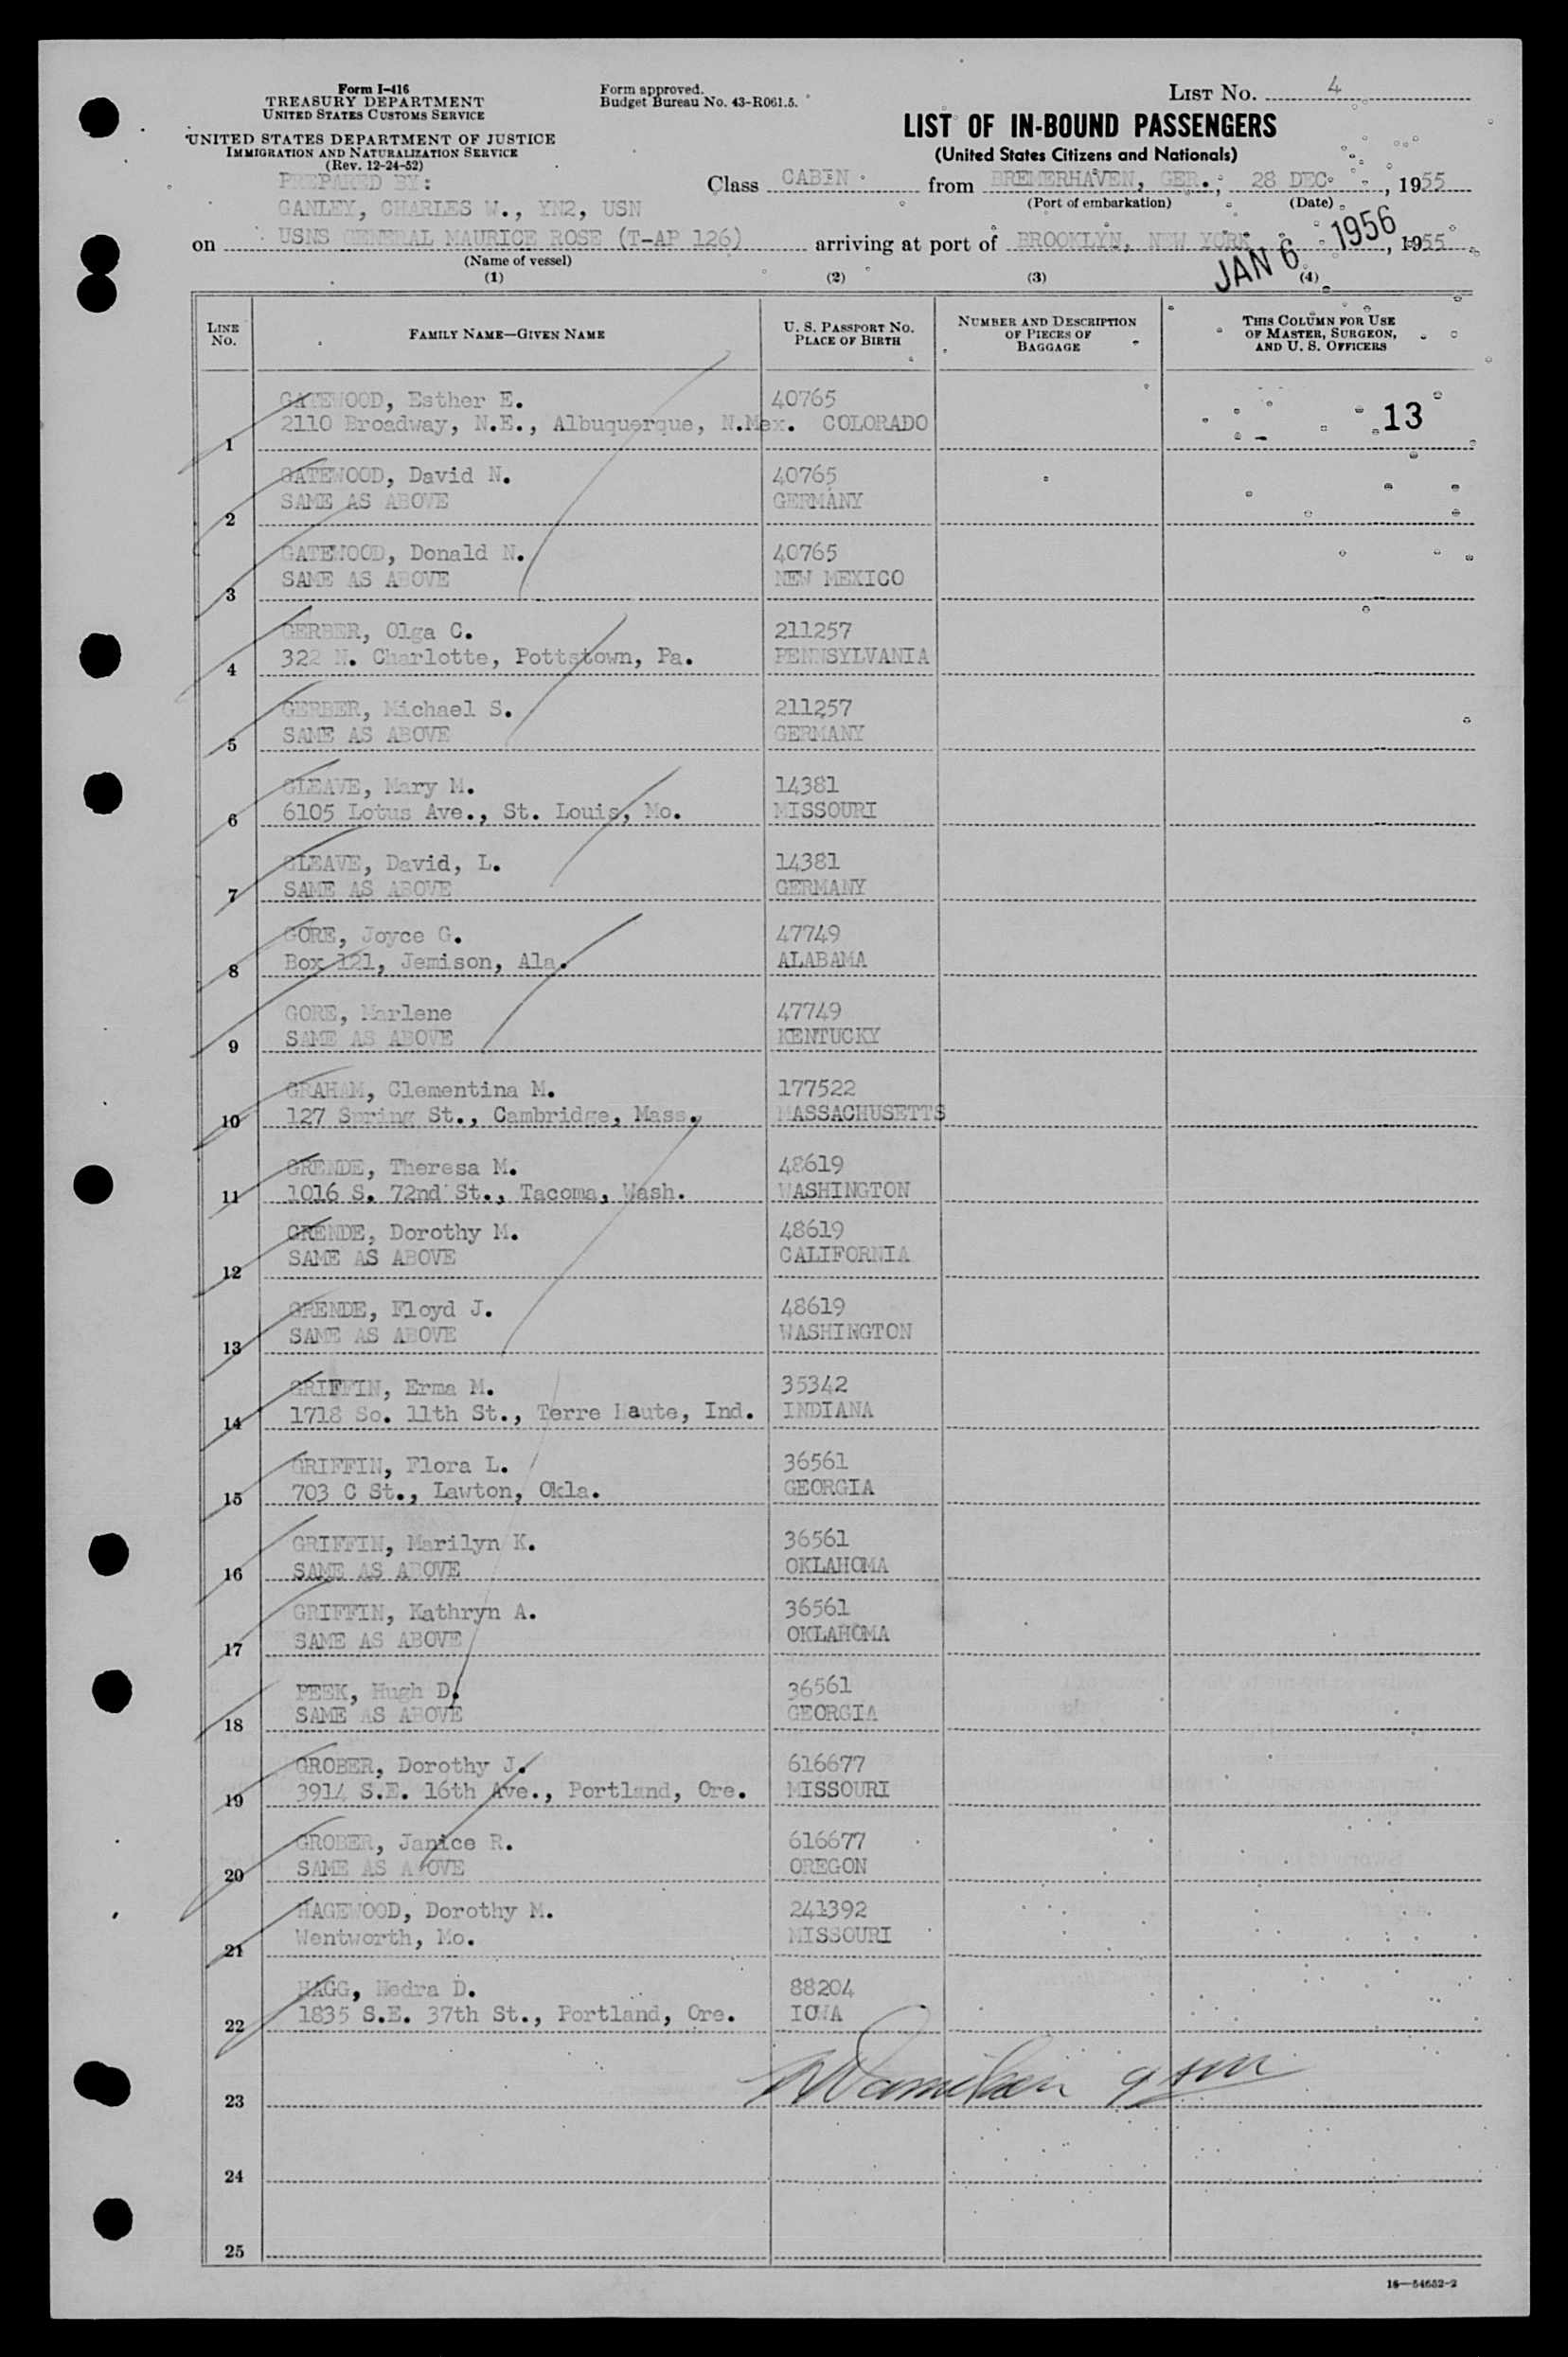 Form I-416
TREASURY DEPARTMENT
UNITED STATES CUSTOMS SERVICE
UNITED STATES DEPARTMENT OF JUSTICE
IMMIGRATION AND NATURALIZATION SERVICE
(Rev. 12-24-52)
Form approved.
Budget Bureau No. 43-R061.5.
LIST NO. 4
LIST OF IN-BOUND PASSENGERS
(United States Citizens and Nationals)
PREPARED BY:
GANLEY, CHARLES W., YN2, USN
Class CABIN from BREMERHAVEN, GER., 28 DEC., 1955
(Port of embarkation) (Date)
on USNS GENERAL MAURICE ROSE (T-AP 126) arriving at port of BROOKLYN, NEW YORK, 1955
(Name of vessel)
JAN 6 1956
(1) (2) (3) (4)
LINE NO. FAMILY NAME—GIVEN NAME U. S. PASSPORT NO. PLACE OF BIRTH NUMBER AND DESCRIPTION OF PIECES OF BAGGAGE THIS COLUMN FOR USE OF MASTER, SURGEON, AND U. S. OFFICERS
GATEWOOD, Esther E. 40765 13
1 2110 Broadway, N.E., Albuquerque, N.Mex. COLORADO
GATEWOOD, David N. 40765
2 SAME AS ABOVE GERMANY
GATEWOOD, Donald N. 40765
3 SAME AS ABOVE NEW MEXICO
GERBER, Olga C. 211257
4 322 N. Charlotte, Pottstown, Pa. PENNSYLVANIA
GERBER, Michael S. 211257
5 SAME AS ABOVE GERMANY
GLEAVE, Mary M. 14381
6 6105 Lotus Ave., St. Louis, Mo. MISSOURI
GLEAVE, David, L. 14381
7 SAME AS ABOVE GERMANY
GORE, Joyce G. 47749
8 Box 121, Jemison, Ala. ALABAMA
GORE, Marlene 47749
9 SAME AS ABOVE KENTUCKY
GRAHAM, Clementina M. 177522
10 127 Spring St., Cambridge, Mass. MASSACHUSETTS
GRENDE, Theresa M. 48619
11 1016 S. 72nd St., Tacoma, Wash. WASHINGTON
GRENDE, Dorothy M. 48619
12 SAME AS ABOVE CALIFORNIA
GRENDE, Floyd J. 48619
13 SAME AS ABOVE WASHINGTON
GRIFFIN, Erma M. 35342
14 1718 So. 11th St., Terre Haute, Ind. INDIANA
GRIFFIN, Flora L. 36561
15 703 C St., Lawton, Okla. GEORGIA
GRIFFIN, Marilyn K. 36561
16 SAME AS ABOVE OKLAHOMA
GRIFFIN, Kathryn A. 36561
17 SAME AS ABOVE OKLAHOMA
PEEK, Hugh D. 36561
18 SAME AS ABOVE GEORGIA
GROBER, Dorothy J. 616677
19 3914 S.E. 16th Ave., Portland, Ore. MISSOURI
GROBER, Janice R. 616677
20 SAME AS ABOVE OREGON
HAGEWOOD, Dorothy M. 241392
21 Wentworth, Mo. MISSOURI
HAGG, Nedra D. 88204
22 1835 S.E. 37th St., Portland, Ore. IOWA
23
24
25
16—54652-2